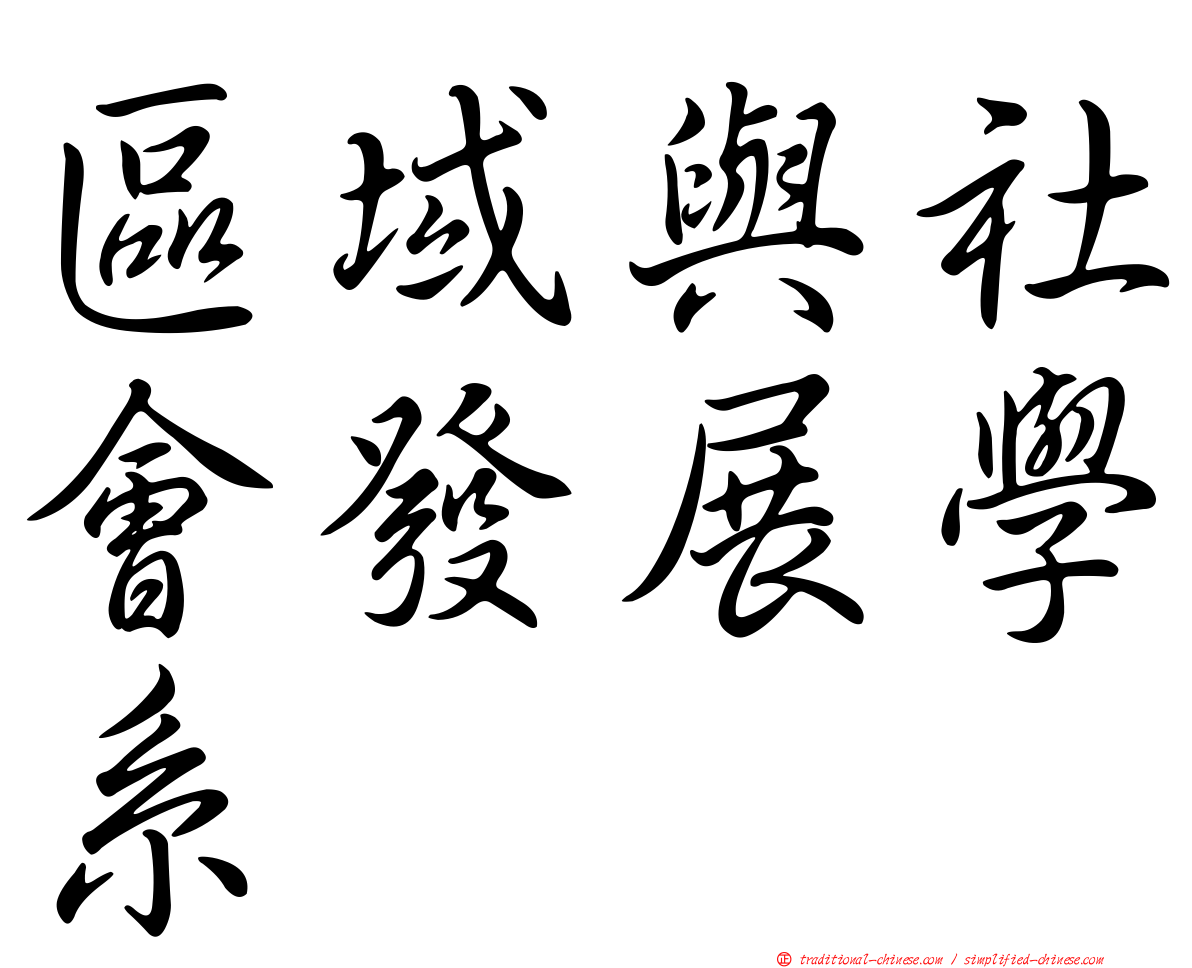 區域與社
會發展學
系
正 traditional-chinese.com / simplified-chinese.com